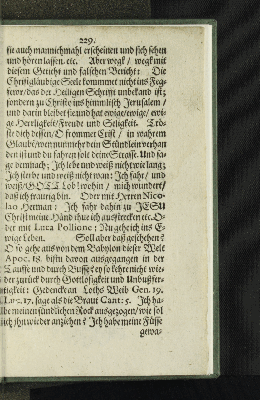 229.
sie auch mannichmahl erscheinen und sich sehen
und hören lassen. etc. Aber wegk / wegk mit
diesem Geticht und falschen Bericht: Die
Christgläubige Seele kommmet nicht ins Feg-
fewr / das der Heiligen Schrifft unbekand ist;
sondern zu Christo ins himmlisch Jerusalem /
und darin bleibet sie und hat ewige / ewige / ewi-
ge Herrligkeit / Freude und Seligkeit. Trös-
ste dich dessen / O frommer Crist / in wahrem
Glaube / wenn nunmehr dein Stündlein verhan
den ist und du fahren solt deine Strasse. Und sa-
ge dennach; Ich lebe und weiß nicht wie lang;
Ich sterbe und weiß nicht wan: Ich fahr / und
weiß / GOTT Lob! wohin / mich wundert /
daß ich traurig bin. Oder mit Herren Nico-
lao Herman: Ich fahr dahin zu JESU
Christ meine Händ thue ich ausstrecken etc. O-
der mit Luca Pollione; Nu geh ich ins E-
wige Leben. Soll aber daß geschehen?
O so gehe aus von dem Babylon dieser Welt
Apoc. 18. bistu davon ausgegangen in der
Tauffe und durch Busse? ey so kehre nicht wie-
der zurück durch Gottlosigkeit und Unbußfer-
tigkeit: Gedenck an Loths Weib Gen. 19.
Luc. 17. sage als die Braut Cant: 5. Ich ha-
be meinen sündlichen Rock ausgezogen / wie sol
ich ihn wieder anziehen? Ich habe meine Füsse
gewa-